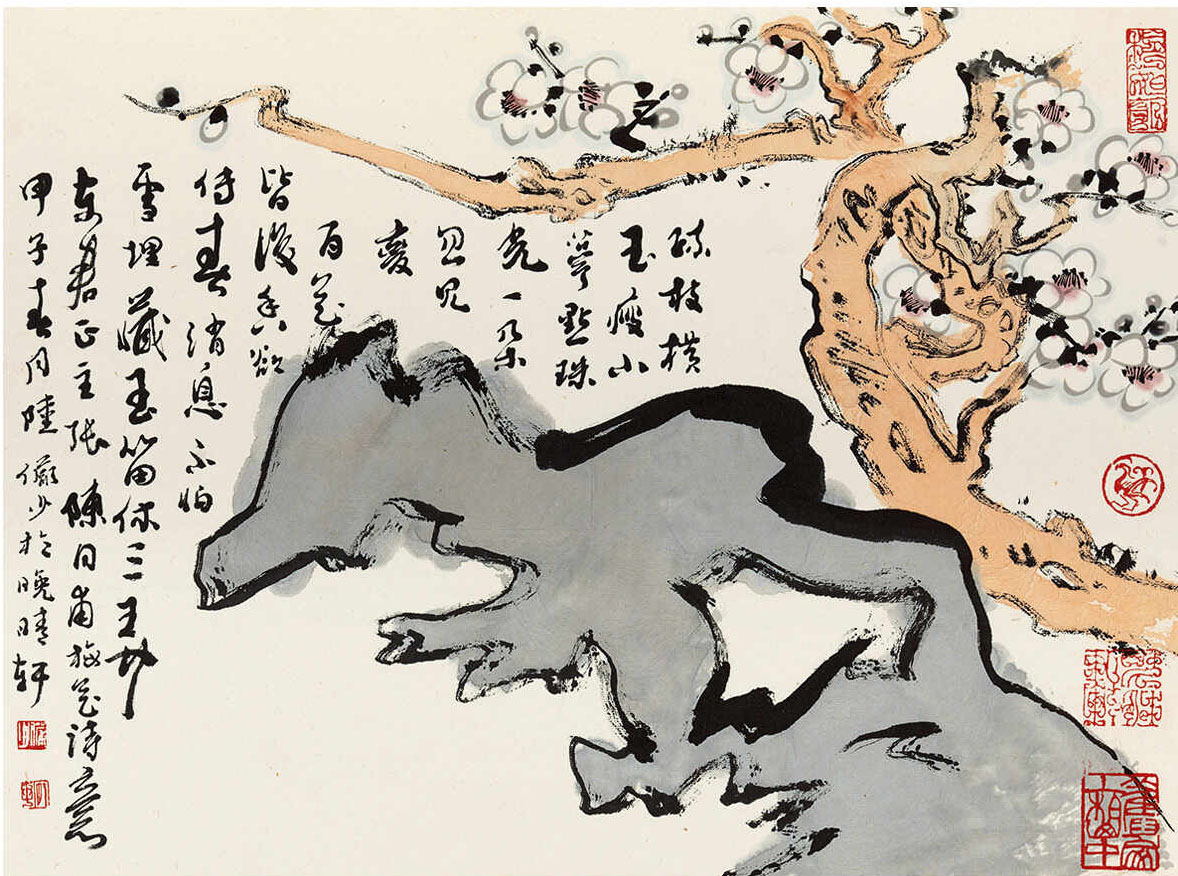 疏枝横
玉瘦小
萼點珠
光一朵
忽先
變
百花
皆後香欲
傳春消息不怕
雪埋藏玉笛休三弄
東君正主張陳同甫梅花詩意
甲子春月陸儼少於晚晴軒